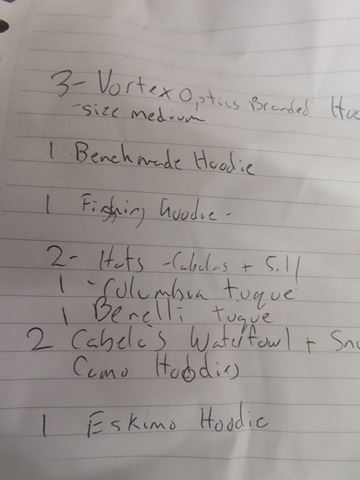 3- Vortex Optics Branded Hoo
-size medium
1 Benchmade Hoodie
1 Fishing hoodie -
2- Hats -Cabelas + 5.11
1 - Columbia tuque
1 Benelli tuque
2 Cabela's Waterfowl + Sno
Camo Hoodies
1 Eskimo Hoodie